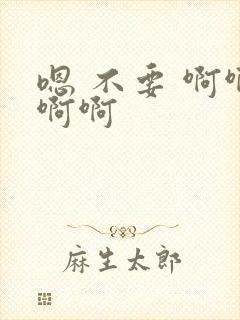 嗯 不要 啊啊
啊啊
麻生太郎